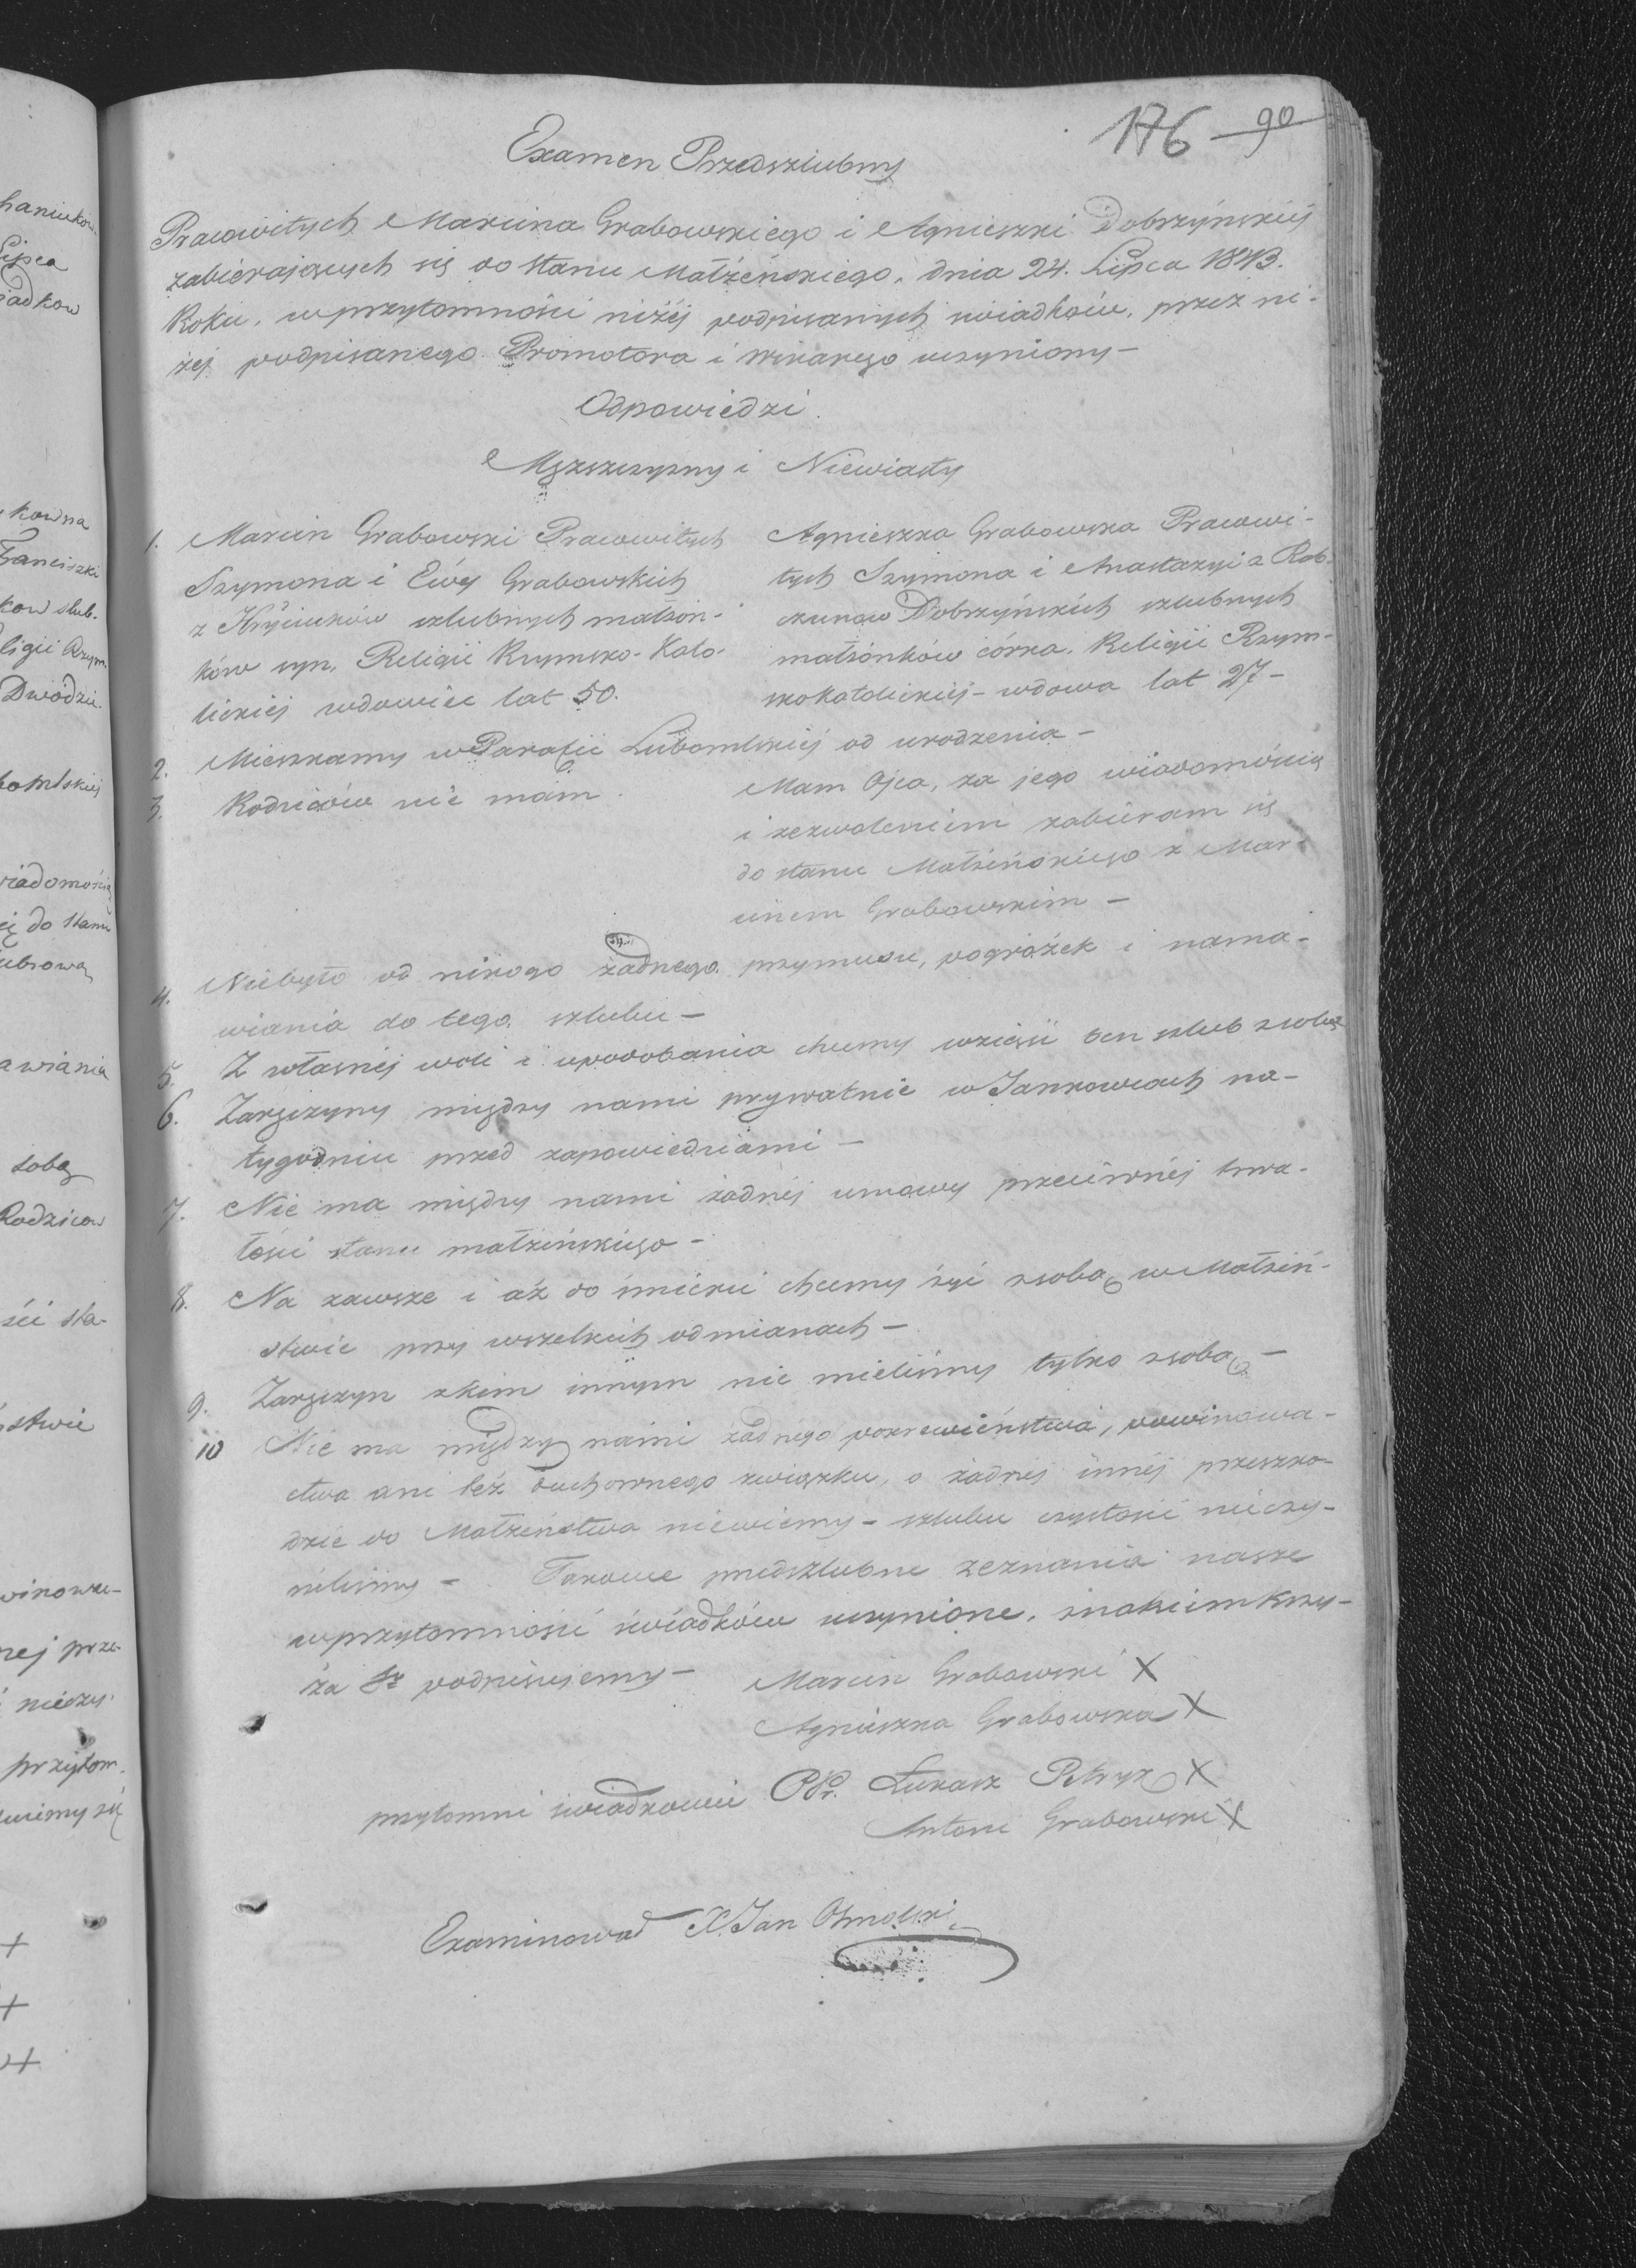 176 90
Examen Przedszlubny
Pracowitych Marcina Grabowskiego i Agnieszki Dobrzyńskiej
zabierających się do stanu Małżeńskiego, dnia 24. Lipca 1843.
Roku, w przytomności niżéj podpisanych swiadków, przez ni-
żej podpisanego Promotora i Wikarego uczyniony -
Odpowiedzi.
Mężczyzny i Niewiasty
1. Marcin Grabowski Pracowitych
Szymona i Ewy Grabowskich
z szlubnych małżon-
ków syn, Religii Rzymsko-Kato-
lickiej wdowiec lat 50.
Agnieszka Grabowska Pracowi-
tych Szymona i Anastazyi z Rab-
czunow Dobrzyńskich szlubnych
małżonków córka, Religii Rzym-
skokatolickiej - wdowa lat 27 -
2. Mieszkamy w Parafii Lubomlskiej od urodzenia -
3. Rodziców nie mam.
Mam Ojca, za jego wiadomością
i zezwoleniem zabieram się
do stanu Małżeńskiego z Mar-
cinem Grabowskim -
4. Niebyło od nikogo żadnego przymusu, pogróżek i nama-
wiania do tego szlubu -
5. Z własnej woli i upodobania chcemy wziąść ten szlub z sobą
6. Zaręczyny między nami prywatnie w Jankowcach na-
tygodniu przed zapowiedziami -
7. Nie ma między nami żadnéj umowy przeciwnéj trwa-
łości stanu małżeńskiego -
8. Na zawsze i aż do śmierci chcemy żyć z sobą w Małżeń-
stwie przy wszelkich odmianach -
9. Zaręczyn z kim innym nie mieliśmy tylko z sobą -
10 Nie ma między nami żadnego pokrewieństwa, powinowa-
ctwa ani też duchownego związku, o żadnej innéj przeszko-
dzie do Małżeństwa niewiemy - szlubu czystości nieczy-
niliśmy - Takowe przedszlubne zeznania nasze
w przytomności świadków uczynione, znakiem krzy-
ża podpisujemy -
Marcin Grabowski X
Agnieszka Grabowska X
przytomni swiadkowie Łukasz Petryk X
Antoni Grabowski X
Examinował X. Jan
haniukow-
Lipca
iadkow
kowna
Franciszki
kow slub-
ligii Rzym-
Dwódzie-
bomlskiej
viadomością
ię do stanu
awiania
sobą
Rodzicow
ści sta-
stwie
winowa-
nej prze-
nieczy-
przytom-
+
+
+